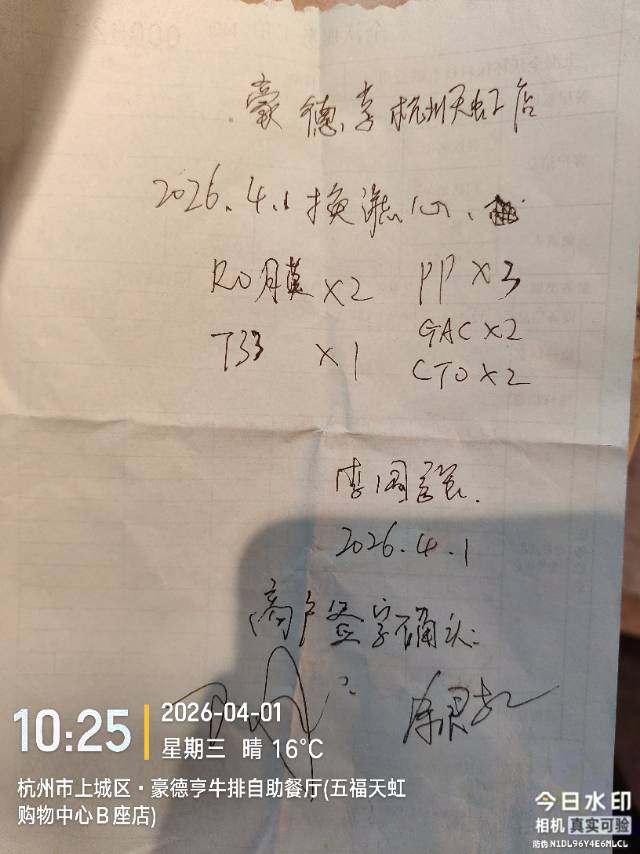 豪德亨杭州天虹店
2026.4.1换滤心、
RO月膜 x2 PP x3
T33 x1 GAC x2
CTO x2
李国强.
2026.4.1
商户签字确认:
10:25
2026-04-01
星期三 晴 16℃
杭州市上城区·豪德亨牛排自助餐厅(五福天虹
购物中心B座店)
今日水印
相机 真实可验
防伪 N1DL96Y4E6MLCL